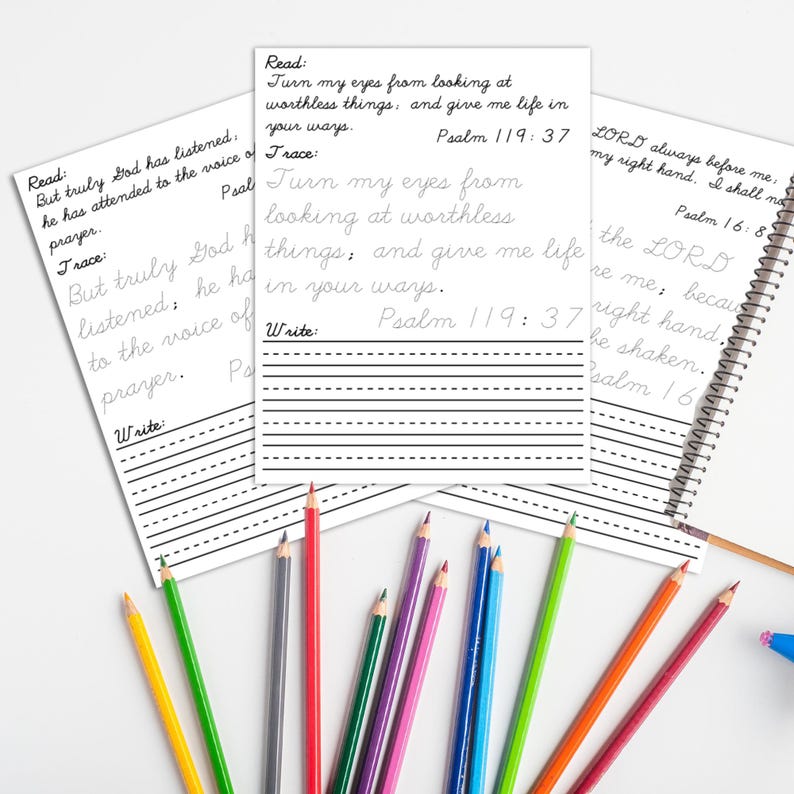 Read:
But truly God has listened;
he has attended to the voice of
prayer.
Psal
Trace:
But truly God h
listened; he ha
to the voice of
prayer. Ps
Write:
Read:
Turn my eyes from looking at
worthless things; and give me life in
your ways.
Psalm 119:37
Trace:
Turn my eyes from
looking at worthless
things; and give me life
in your ways.
Psalm 119:37
Write:
LORD always before me;
my right hand. I shall no
Psalm 16:8
the LORD
re me; becau
right hand,
be shaken.
salm 16